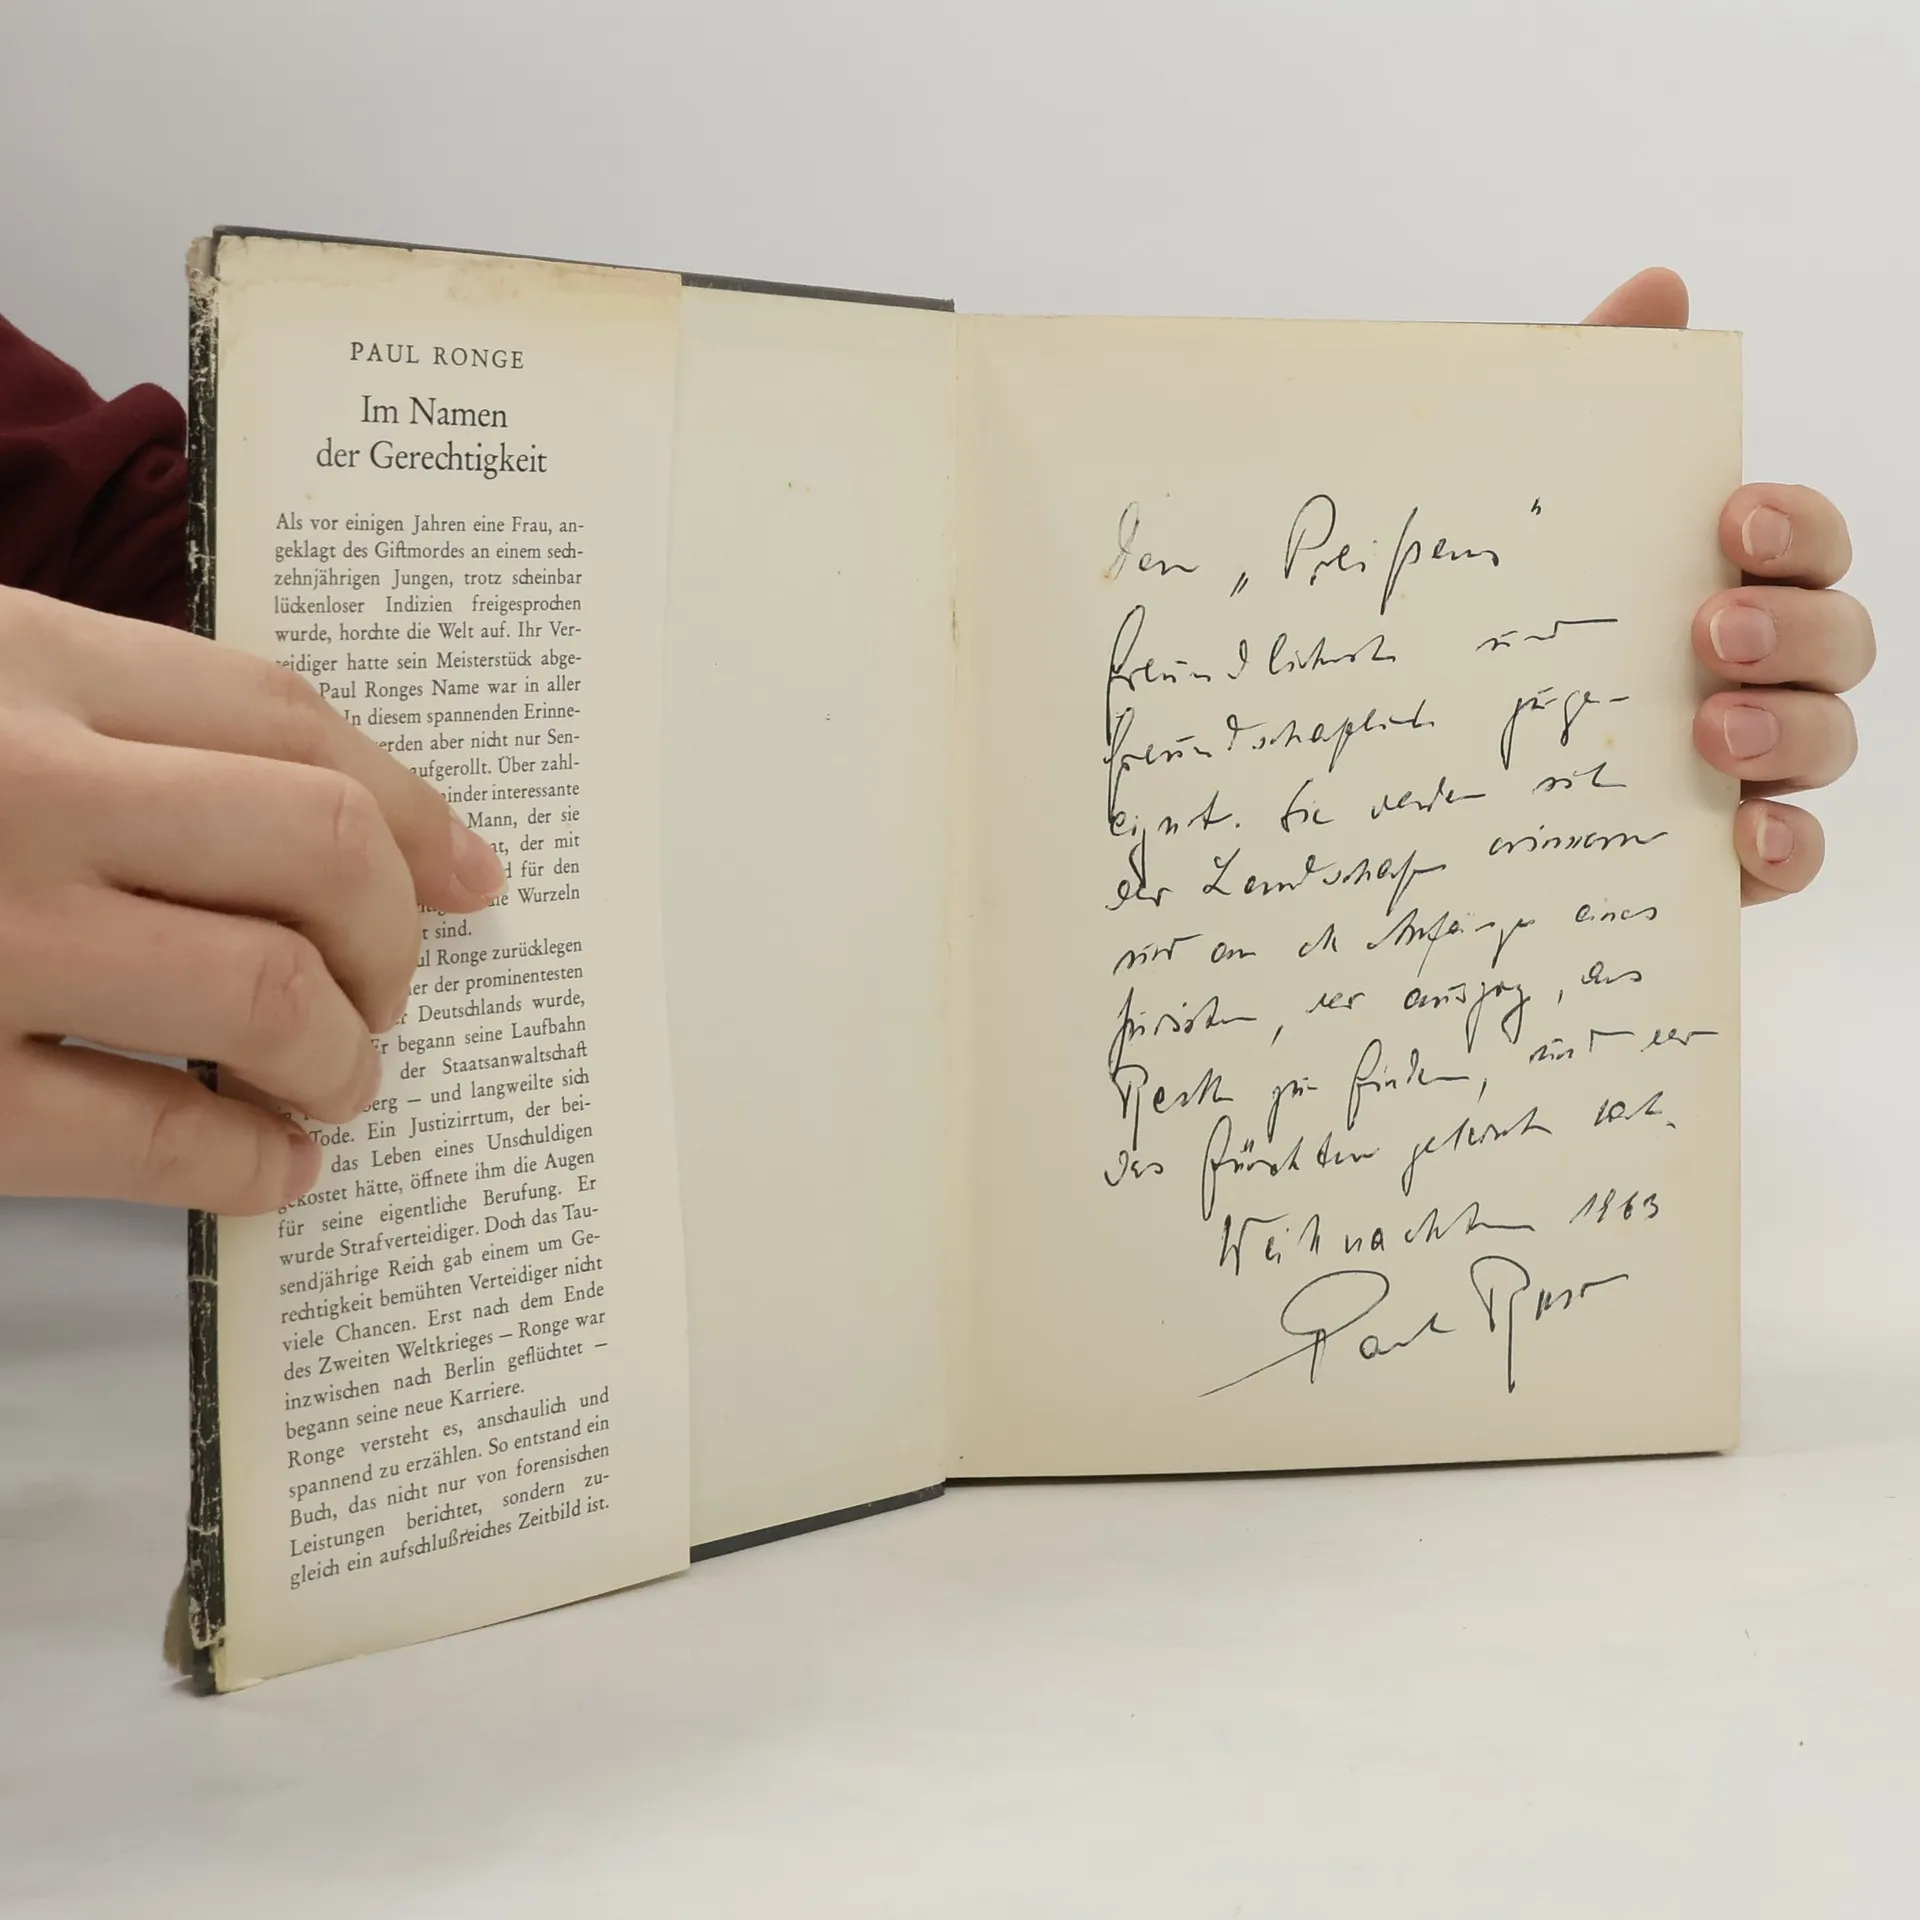 PAUL RONGE
Im Namen
der Gerechtigkeit
Als vor einigen Jahren eine Frau, an-
geklagt des Giftmordes an einem sech-
zehnjährigen Jungen, trotz scheinbar
lückenloser Indizien freigesprochen
wurde, horchte die Welt auf. Ihr Ver-
teidiger hatte sein Meisterstück abge-
Paul Ronges Name war in aller
In diesem spannenden Erinne-
werden aber nicht nur Sen-
aufgerollt. Über zahl-
minder interessante
Mann, der sie
der mit
für den
die Wurzeln
t sind.
Paul Ronge zurücklegen
der prominentesten
Deutschlands wurde,
Er begann seine Laufbahn
der Staatsanwaltschaft
berg – und langweilte sich
Tode. Ein Justizirrtum, der bei-
das Leben eines Unschuldigen
gekostet hätte, öffnete ihm die Augen
für seine eigentliche Berufung. Er
wurde Strafverteidiger. Doch das Tau-
sendjährige Reich gab einem um Ge-
rechtigkeit bemühten Verteidiger nicht
viele Chancen. Erst nach dem Ende
des Zweiten Weltkrieges – Ronge war
inzwischen nach Berlin geflüchtet –
begann seine neue Karriere.
Ronge versteht es, anschaulich und
spannend zu erzählen. So entstand ein
Buch, das nicht nur von forensischen
Leistungen berichtet, sondern zu-
gleich ein aufschlußreiches Zeitbild ist.
Den
freundlichst und
freundschaftlich zuge-
eignet. Sie werden sich
der Landschaft erinnern
und an die Anfänge eines
Juristen, der auszog, das
Recht zu finden, und der
das Fürchten gelernt hat.
Weihnachten 1963
Paul Ronge